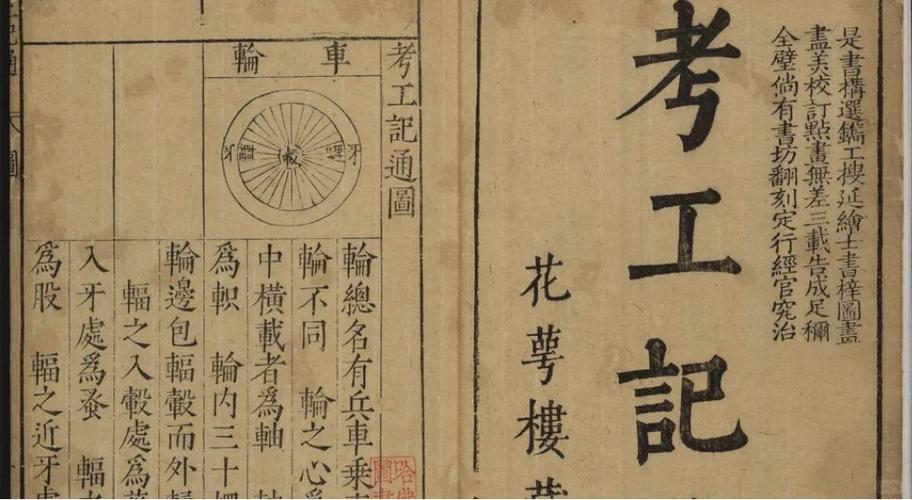 是書構選鐫工搜延繪士書梓圖畫
盡美校訂點畫無差三載告成足稱
全璧倘有書坊翻刻定行經官究治
考工記
花萼樓
考工記通圖
車輪
牙
輻
轂
輻
牙
輪總名有兵車乗
輪不同 輪之心
中橫載者為軸
為軹 輪内三十
輪邊包輻轂而外
輻之入轂處為
入牙處為蚤
為股 輻之近牙
圖